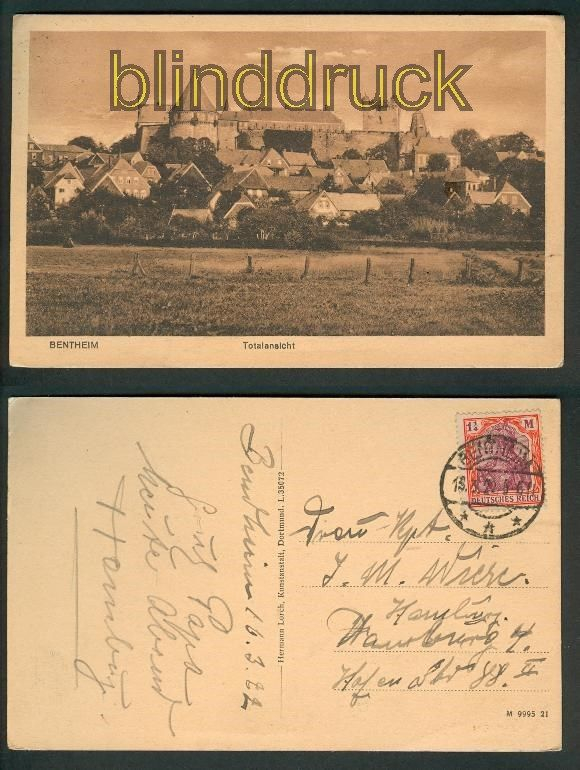 blinddruck
BENTHEIM
Totalansicht
Bentheim 16.3.22
Gruß Papa
Heute Abend
Hamburg.
Hermann Lorch, Kunstanstalt, Dortmund. L.35072
1¼ M
DEUTSCHES REICH
Frau Kpt.
J. M. Wiere.
Hamburg.
Hamburg 4.
Hafen Str 88. II
M 9995 21